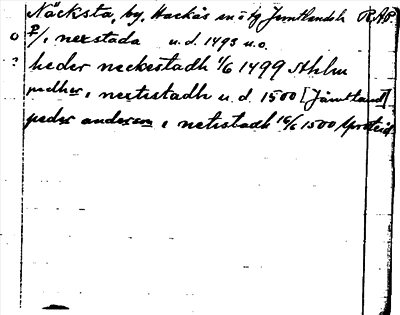 Näcksta, by, Hackås sn o tg Jämtlands R.A.P.
o P/i nexstada u.d. 1493 u.o.
? heder neckestadh 1/6 1499 Sthlm
pedher i nextistadh u.d. 1500 [Jämtland]
peder anderson i netistadh 16/6 1500